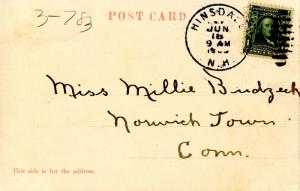 3-783
POST CARD
HINSDALE
JUN
16
9 AM
N.H.
Miss Millie Budzeck
Norwich Town
Conn.
This side is for the address.